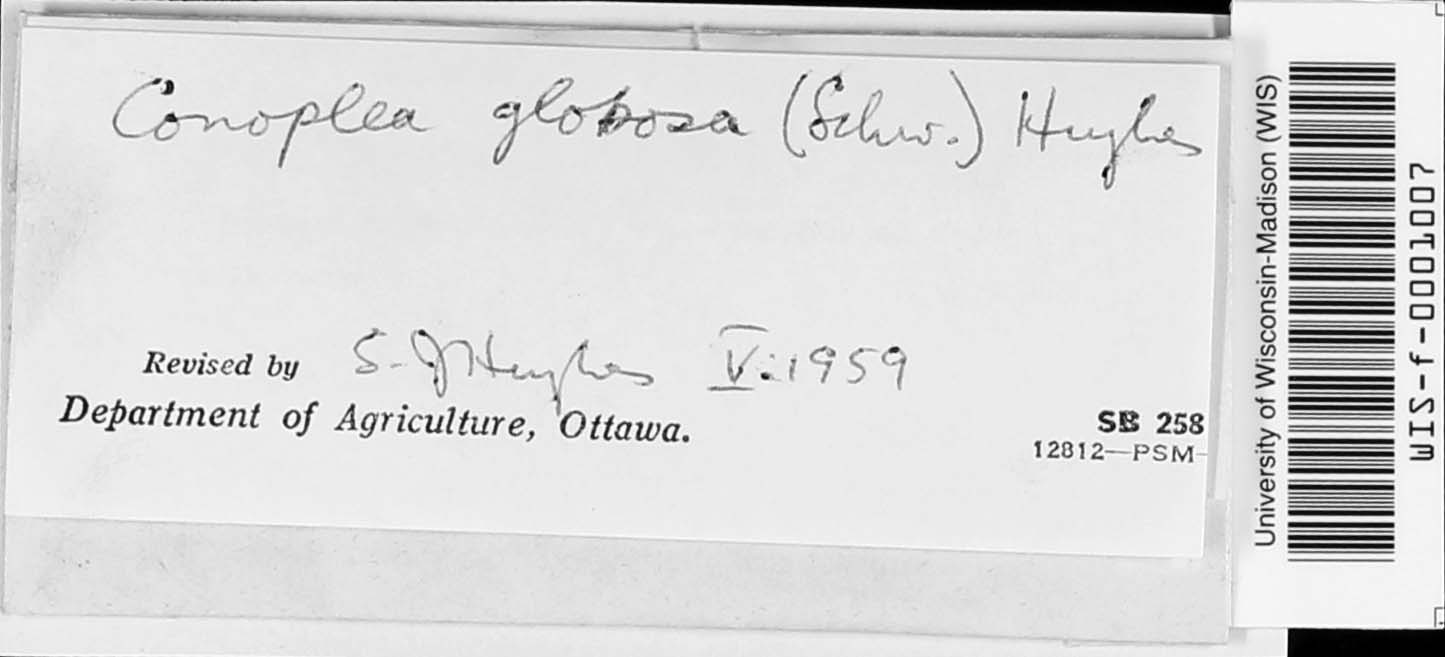 Conoplea globosa (Schw.) Hughes
Revised by S. J Hughes V:1959
Department of Agriculture, Ottawa.
SB 258
12812—PSM-
University of Wisconsin-Madison (WIS)
WIS-f-0001007